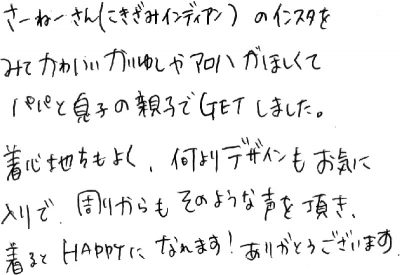 さーねーさん(こきざみインディアン)のインスタを
みてかわいいかりゆしやアロハがほしくて
パパと息子の親子でGETしました。
着心地もよく、何よりデザインもお気に
入りで、周りからもそのような声を頂き、
着るとHAPPYになれます!ありがとうございます。